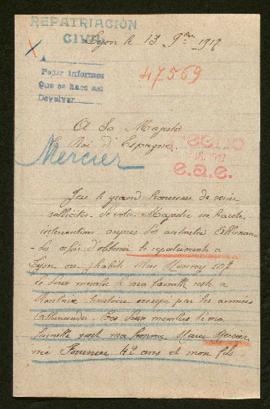 REPATRIACIÓN
CIVIL
Lyon le 13 9bre 1917
Pedir informes
Que se hace así
Devolver
47569
A Sa Majesté
le Roi d'Espagne
Mercier
e.a.e.
J'ai le grand honneur de venir
solliciter de votre Majesté sa haute
intervention auprès des autorités Allemandes
afin d'obtenir le rapatriement à
Lyon où j'habite
de deux membres de ma famille resté à
territoire occupé par les armées
Allemandes. Ces deux membres de ma
famille sont ma femme Marie Mercier
née 42 ans et mon fils